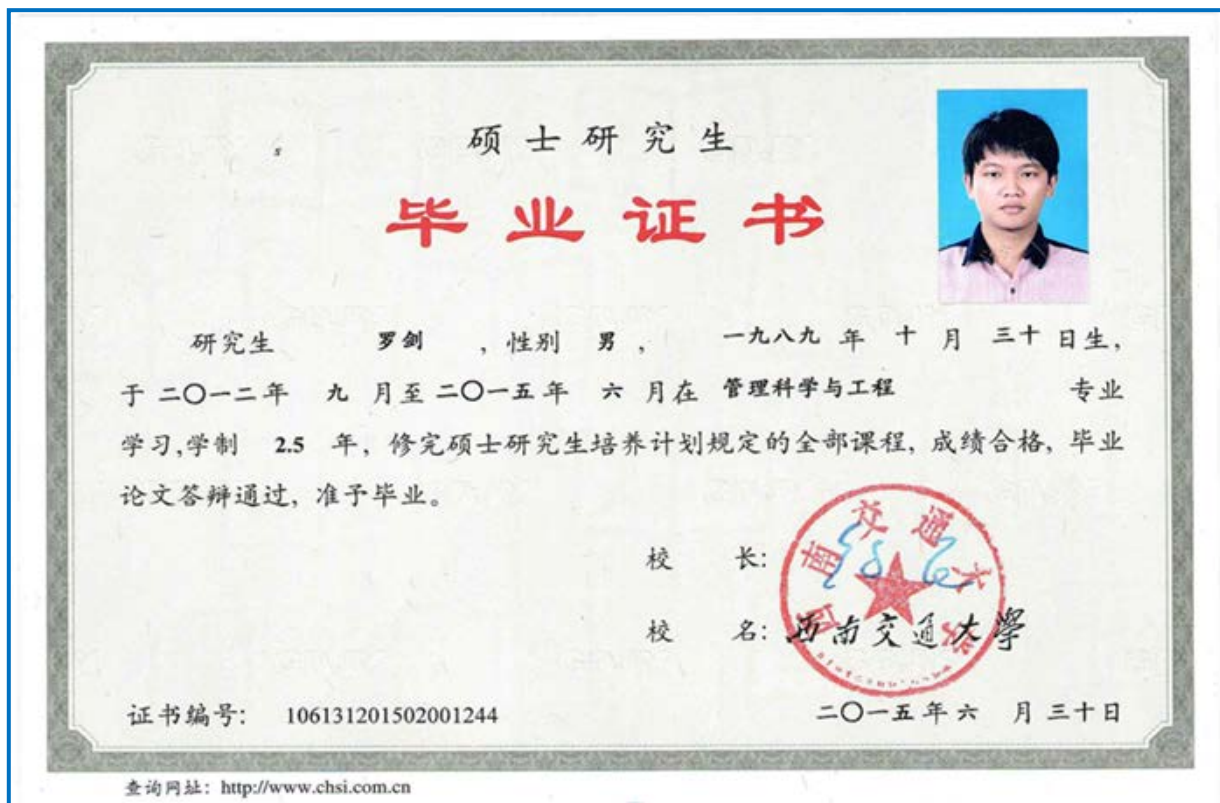 硕士研究生
毕业证书
研究生 罗剑 ，性别 男 ， 一九八九 年 十 月 三十 日生，
于 二〇一二年 九 月至 二〇一五年 六 月在 管理科学与工程 专业
学习,学制 2.5 年，修完硕士研究生培养计划规定的全部课程，成绩合格，毕业
论文答辩通过，准予毕业。
校 长：
西南交通大学
校 名：西南交通大學
证书编号： 106131201502001244
二〇一五年六 月三十日
查询网址：http://www.chsi.com.cn